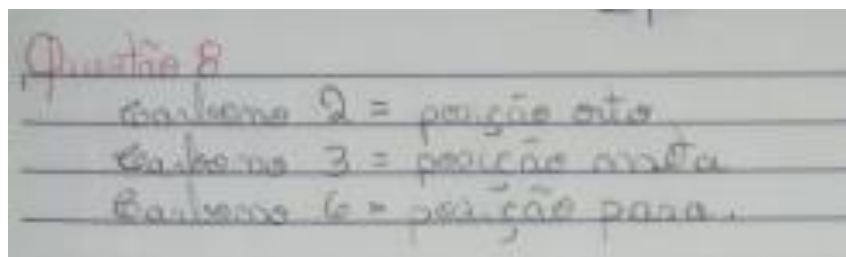 Questão 8
Carbono 2 = posição orto
Carbono 3 = posição meta
Carbono 6 = posição para.